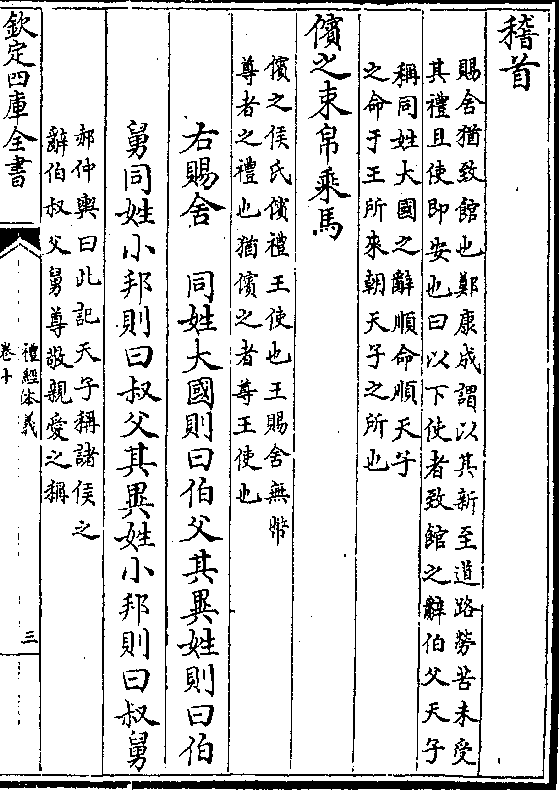 稽首
賜舍猶致館也鄭康成謂以其新至道路勞苦未受
其禮且使即安也曰以下使者致館之辭伯父天子
稱同姓大國之辭順命順天子
之命于王所來朝天子之所也
儐之束帛乘馬
儐之侯氏儐禮王使也王賜舍無幣
尊者之禮也猶儐之者尊王使也
右賜舍　同姓大國則曰伯父其異姓則曰伯
舅同姓小邦則曰叔父其異姓小邦則曰叔舅
郝仲輿曰此記天子稱諸侯之
辭伯叔父舅尊敬親愛之稱
欽定四庫全書
禮經本義
卷十
三